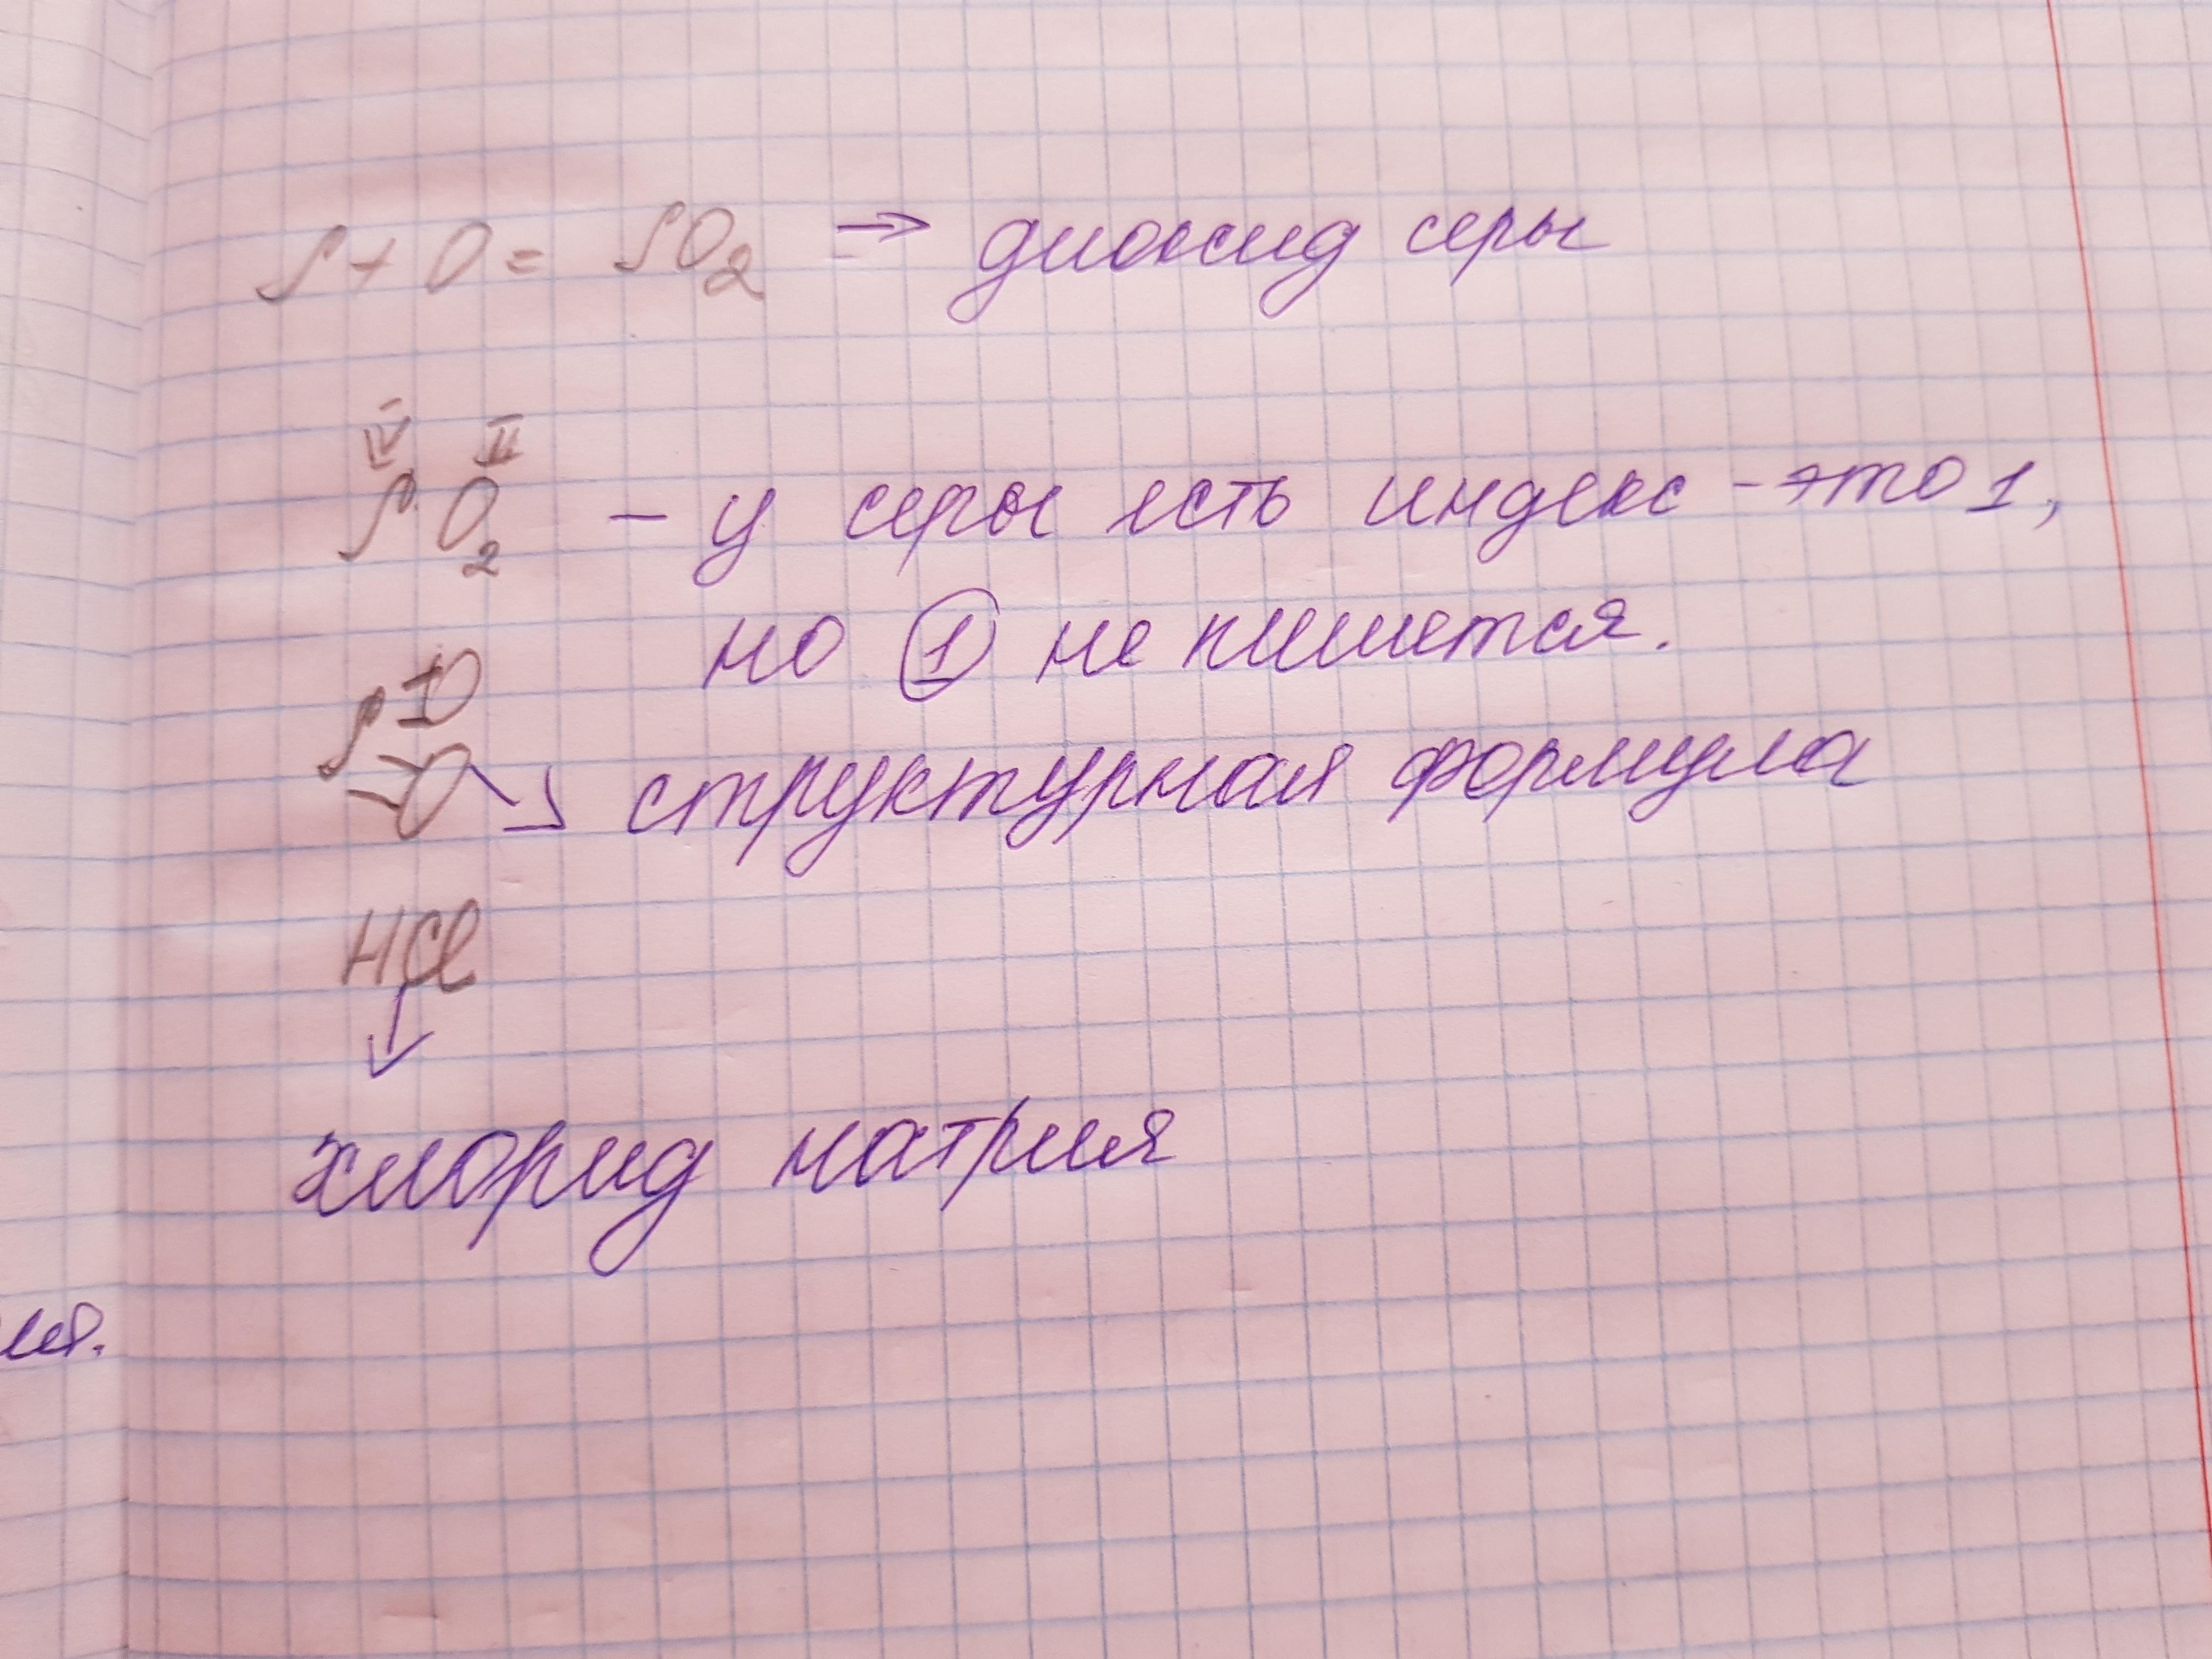 S + O = SO2 → диоксид серы
IV II
SO2 - у серы есть индекс - это 1,
но 1 не пишется.
O
S
O → структурная формула
HCl
↓
хлорид натрия
ия.